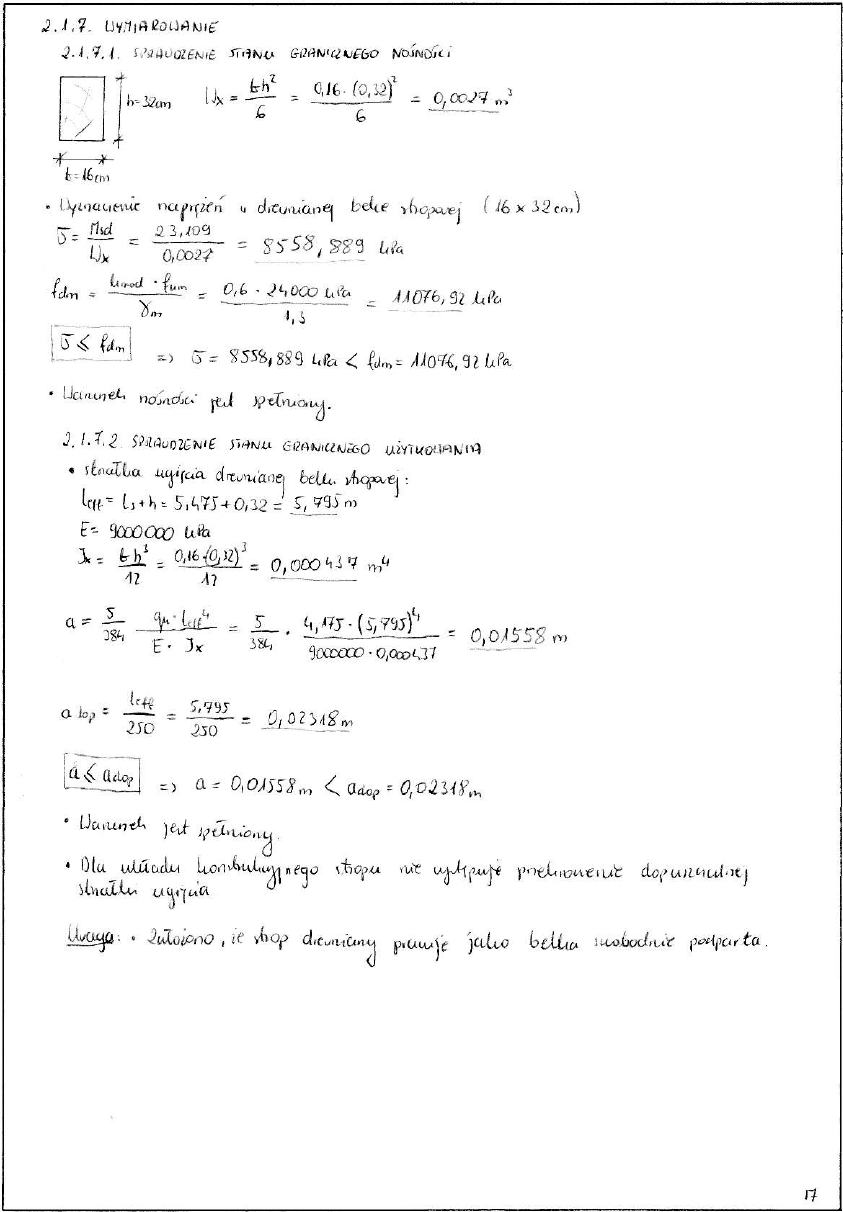 2.1.7. WYMIAROWANIE
2.1.7.1. SPRAWDZENIE STANU GRANICZNEGO NOŚNOŚCI
h=32cm Wx = bh²/6 = 0,16·(0,32)²/6 = 0,0027 m³
b=16cm
• Wyznaczenie naprężeń w drewnianej belce stropowej (16 x 32cm)
σ = Msd/Wx = 23,109/0,0027 = 8558,889 kPa
fdm = kmod · fkm/γm = 0,6 · 24000 kPa/1,3 = 11076,92 kPa
σ ≤ fdm => σ = 8558,889 kPa < fdm = 11076,92 kPa
• Warunek nośności jest spełniony.
2.1.7.2. SPRAWDZENIE STANU GRANICZNEGO UŻYTKOWANIA
• strzałka ugięcia drewnianej belki stropowej:
leff = ls+h = 5,475+0,32 = 5,795 m
E = 9000000 kPa
Jx = bh³/12 = 0,16·(0,32)³/12 = 0,000437 m⁴
a = 5/384 qk·leff⁴/E·Jx = 5/384 · 4,175·(5,795)⁴/9000000·0,000437 = 0,01558 m
a dop = leff/250 = 5,795/250 = 0,02318 m
a ≤ adop => a = 0,01558 m < adop = 0,02318 m
• Warunek jest spełniony.
• Dla układu konstrukcyjnego stropu nie występuje przekroczenie dopuszczalnej
strzałki ugięcia
Uwaga: • Założono, że strop drewniany pracuje jako belka swobodnie podparta.
17